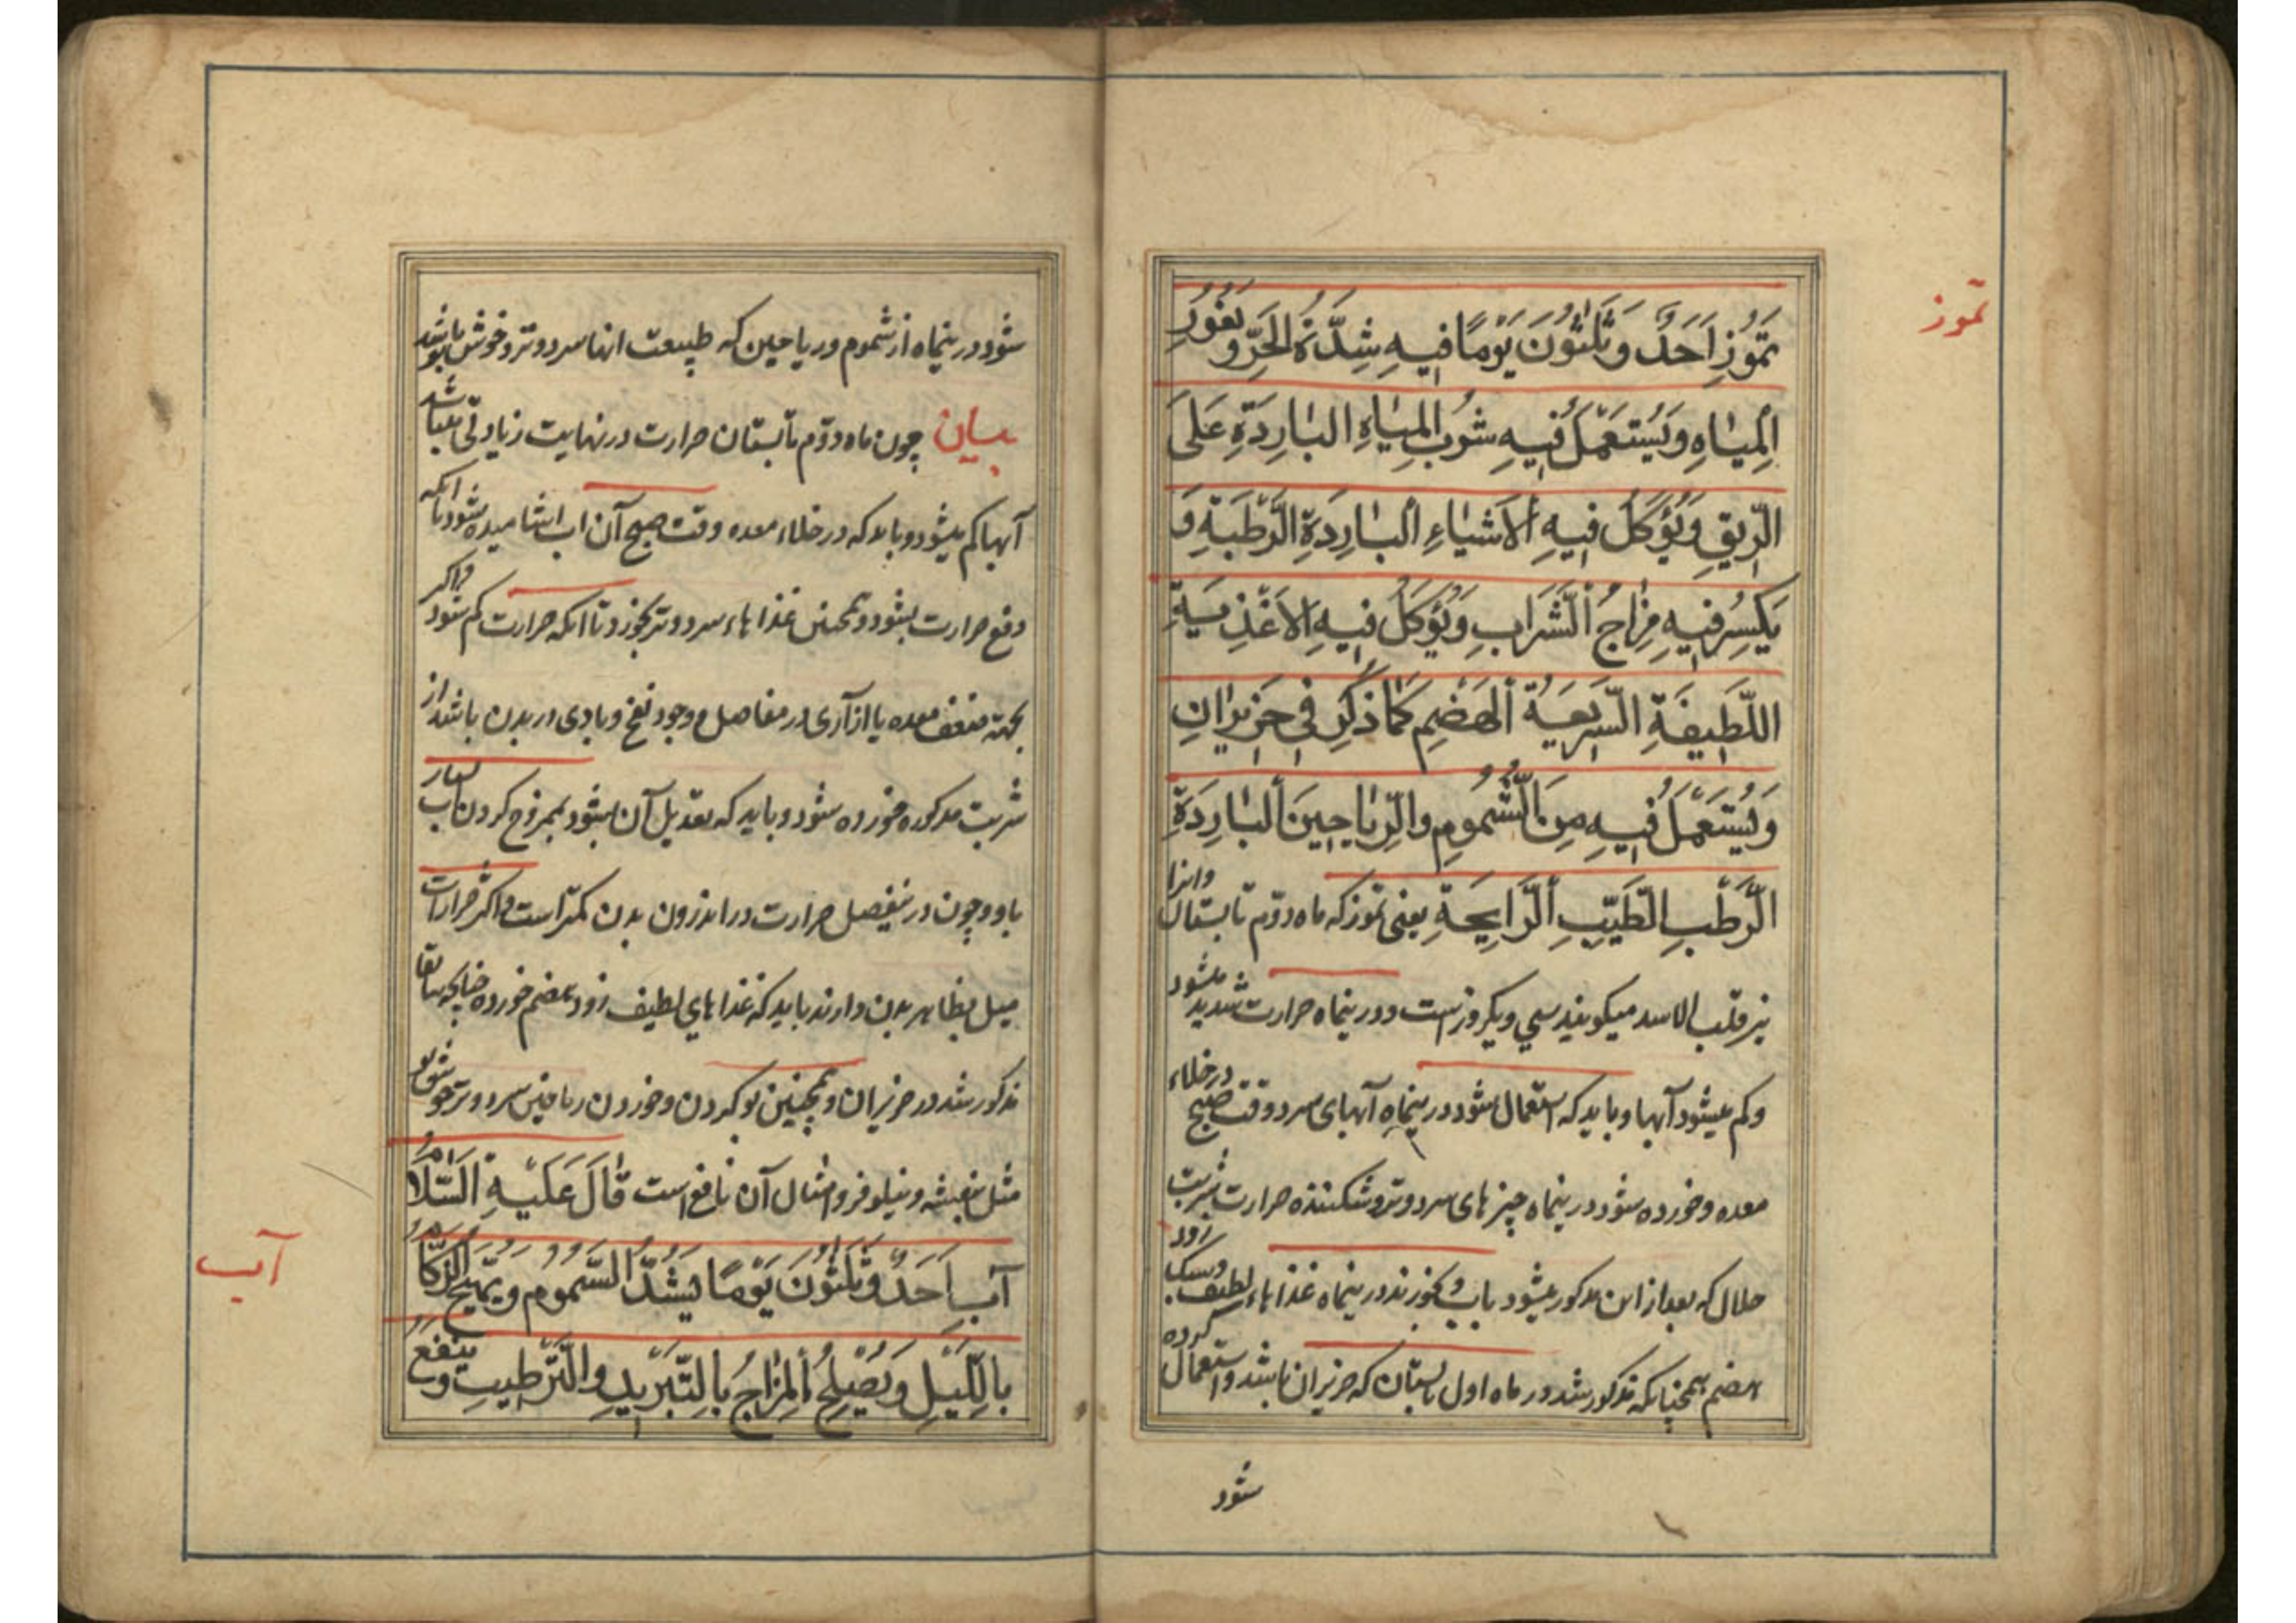 تموز
تَمُّوزِ اَحَدٌ وَثَلٰثُونَ يَوْمًا فيهِ شِدَّةُ الْحَرِّ وَ يَغُورُ
الْمِيٰاهِ وَيُسْتَعْمَلُ فيهِ شُرْبُ الْمِيٰاهِ الْبٰارِدَةِ عَلَى
الرّيقِ وَيُؤْكَلُ فيهِ الْاَشْيٰاءِ الْبٰارِدَةِ الرَّطْبَةِ وَ
يَكْسِرُ فيهِ مِزٰاجُ الشَّرٰابِ وَيُؤْكَلُ فيهِ الْاَغْذِيَةِ
اللَّطيفَةِ السَّريعَةُ الْهَضْمِ كَمٰا ذُكِرَ فى حَزيرٰانِ
وَيُسْتَعْمَلُ فيهِ مِنَ الشُّمُومِ وَالرَّيٰاحينَ الْبٰارِدَةِ
الرَّطْبِ الطَّيِّبِ الرّٰايِحَةِ يعنى تموز كه ماه دوّم تابستان وانرا
نيز قلب الاسد ميكويند سي ويكروز است ودرينماه حرارت شديد ميشود
وكم ميشود آبها وبايد كه استعمال شود درينماه آبهاى سرد وقت صبح در خلاء
معده وخورده شود درينماه چيزهاى سرد وتر وشكننده حرارت شربت
حلال كه بعد از اين مذكور ميشود باب وبخورند درينماه غذاهاء لطيف وسبك زود
هضم همچنانكه مذكور شد در ماه اول تابستان كه حزيران باشد واستعمال كرده
شود
شود درينماه از شموم ورياحين كه طبيعت انها سرد وتر وخوش بو باشد
بيان چون ماه دوّم تابستان حرارت در نهايت زيادتى ميباشد
آبها كم ميشود وبايد كه در خلاء معده وقت صبح آن اب اشاميده شود تا انكه
دفع حرارت بشود وهمچنين غذاهاء سرد وتر بخورد تا انكه حرارت كم شود واكر
بجهة ضعف معده يا ازآرى در مفاصل و وجود نفخ وبادى در بدن باشد از
شربت مذكوره خورده شود وبايد كه تعديل آن بشود بممزوج كردن اب
باو وچون درينفصل حرارت در اندرون بدن كمتر است واكثر حرارات
ميل بظاهر بدن دارند بايد كه غذاهاي لطيف زود هضم خورده چنانچه سابقا
مذكور شد در حزيران وهمچنين بو كردن وخوردن رياحين سرد وتر خوشبو
مثل بنفشه ونيلوفر وامثال آن نافع است قٰالَ عَلَيْهِ السَّلٰامُ
آب
آب اَحَدٌ وَثَلٰثُونَ يَوْمًا يَشْتَدُّ السَّمُومُ وَيَهيجُ الزُّكٰامُ
بِاللَّيْلِ وَيُصْلِحُ الْمِزٰاجُ بِالتَّبْريدِ وَالتَّرْطيبِ وَ يَنْفَعُ